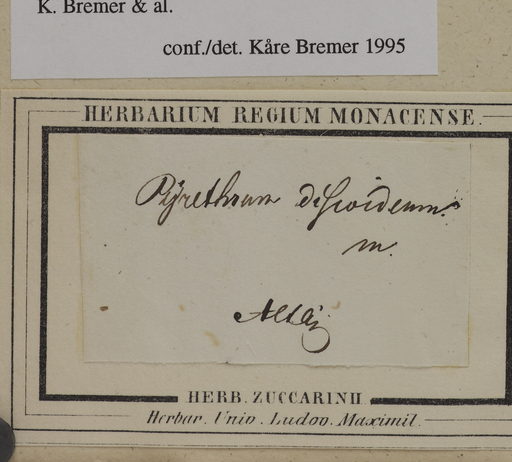 K. Bremer & al.
conf./det. Kåre Bremer 1995
HERBARIUM REGIUM MONACENSE.
Pyrethrum discoideum.
m.
Altai
HERB. ZUCCARINII.
Herbar. Univ. Ludov. Maximil.